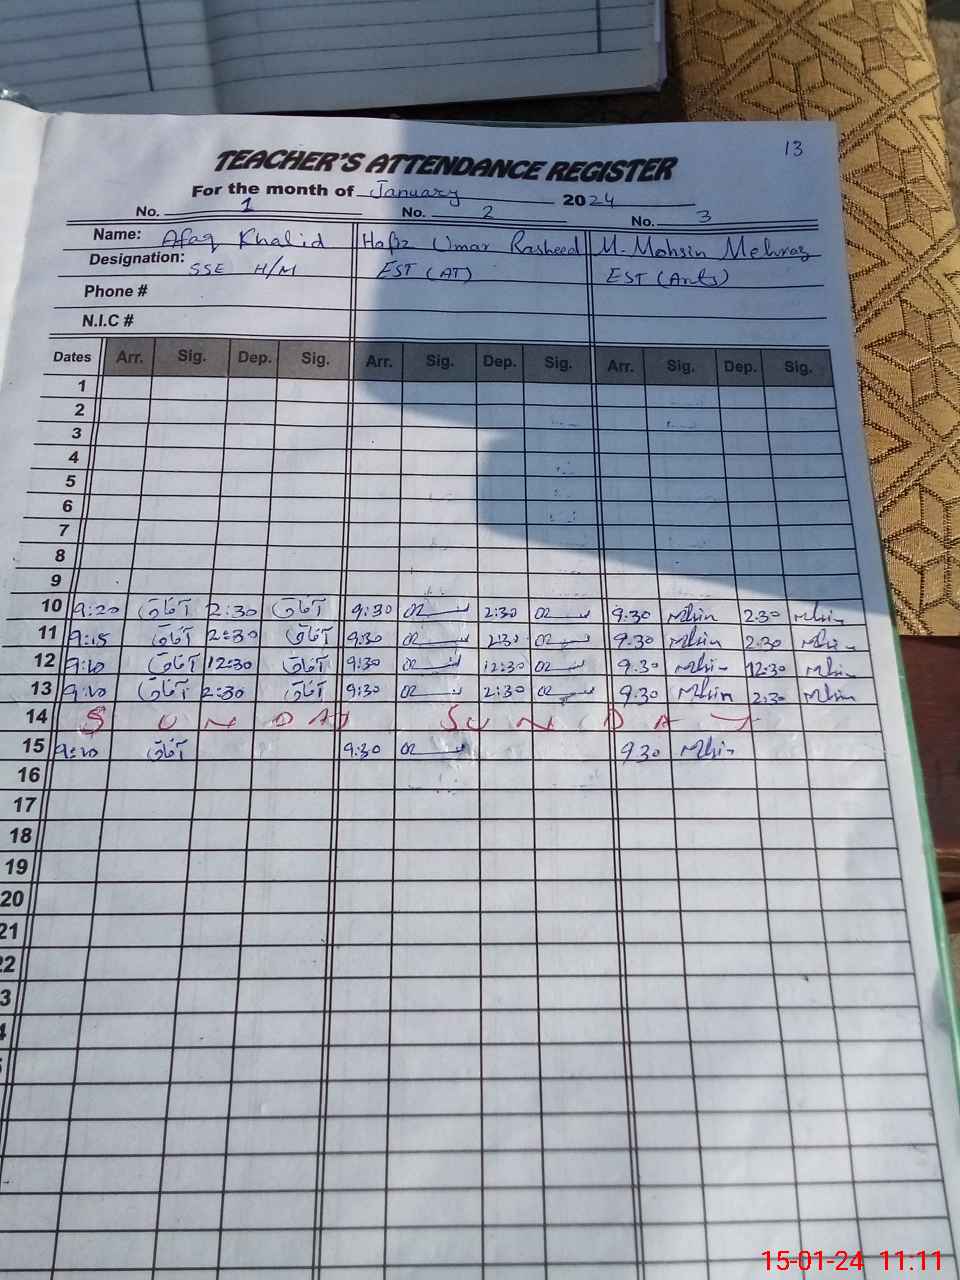 13
TEACHER'S ATTENDANCE REGISTER
For the month of January 2024
No. 1 No. 2 No. 3
Name: Afaq Khalid Hafiz Umar Rasheed M. Mohsin Mehroz
Designation: SSE H/M EST (AT) EST (Arts)
Phone #
N.I.C #
Dates Arr. Sig. Dep. Sig. Arr. Sig. Dep. Sig. Arr. Sig. Dep. Sig.
1
2
3
4
5
6
7
8
9
10 9:20 آفاق 2:30 آفاق 9:30 2:30 9:30 2:30
11 9:15 آفاق 2:30 آفاق 9:30 2:30 9:30 2:30
12 9:10 آفاق 12:30 آفاق 9:30 12:30 9:30 12:30
13 9:10 آفاق 2:30 آفاق 9:30 2:30 9:30 2:30
14 SUNDAY SUNDAY
15 9:10 آفاق 9:30 9:30
16
17
18
19
20
21
22
3
4
15-01-24 11:11